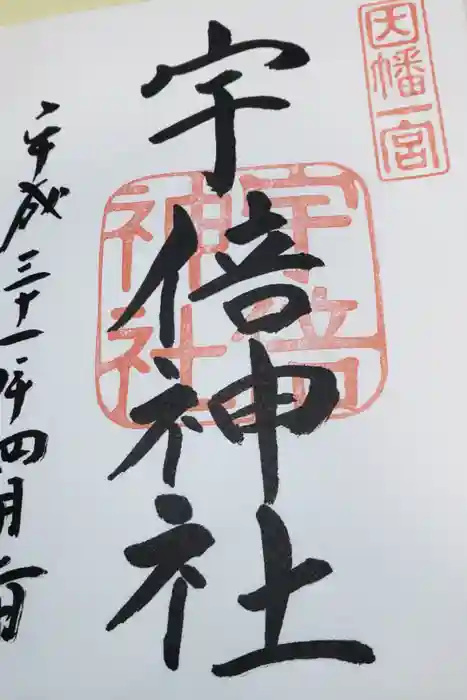 因幡一宮
宇倍神社
宇倍神社
平成三十一年四月二日